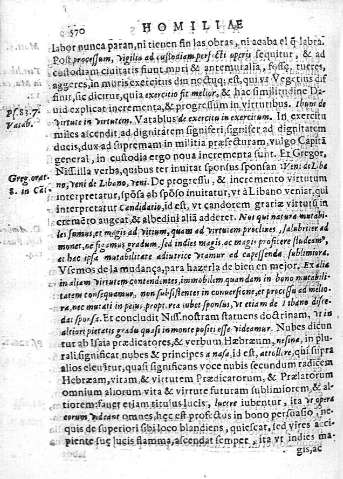 570 HOMILIAE
labor nunca paran, ni tienen fin las obras, ni acaba el q̃ labra.
Post processum, Vigilia ad custodiam perfecti operis sequitur, & ad
custodiam ciuitatis fiunt muri & antemuralia, fossę, turres,
aggeres, in muris exercitus din noctuq; est, qui vt Vegetius dif
finit, sic dicitur, quia exercitio fit melior, & hac similitudine Da-
uid explicat incrementa, & progressum in virtutibus. Ibunt de
Ps. 83. 7.
virtute in virtutem. Vatablus de exercitu in exercitum. In exercitu
Vatab.
miles ascendit ad dignitatem signiferi, signifer ad dignitatem
ducis, dux ad supremam in militia præfecturam, vulgo Capitā
general, in custodia ergo noua incrementa sunt. Et Gregor.
Greg. orat.
Niss. illa verba, quibus ter inuitat sponsus sponsam Veni de Liba
8. in Cāt
no, Veni de Libano, Veni. De progressu, & incremento virtutum
interpretatur, spōsa ab spōso inuitatur, vt à Libano veniat, qui
interpretatur Candidatio, id est, vt candorem gratiæ virtutū in
cremēto augeat, & albedini aliā adderet. Nos qui natura mutabi-
les sumus, et magis ad vitium, quam ad virtutem procliues, salubriter ad
monet, ne figamus gradum, sed indies magis ac magis proficere studeam9,
et hac ipsa mutabilitate adiutrice vtamur ad capessenda sublimiora.
Vsemos de la mudança, para hazerla de bien en mejor. Et alia
in aliam virtutem contendentes immobilem quandam in bono mutabili-
tatem consequamur, non subsistentes in conuersione, et profectu ad melio-
ra, nec mutati in peius, propterea iubet sponsus, vt etiam de Libano disce-
dat sponsa. Et concludit Niss. nostram statuens doctrinam, Vt in
altiori pietatis gradu quasi in monte positi esse videamur. Nubes dicun
tur ab Isaia prædicatores, & verbum Hæbræum, nesina, in plu-
rali significat nubes & principes a nasa, id est, attollere, qui supra
alios eleuantur, quasi significans voce nubis secundum radicem
Hebræam, vitam & virtutem Prædicatorum, & Prælatorum
omnium aliorum vita & virtute futuram sublimiorem, & al-
tiorem: fauet etiam titulus lucis, lucere iubentur, ita vt opera
eorum videant omnes, hęc est profectus in bono persuasio, ne-
quis de superiori sibi loco blandiens, quiescat, sed vires acci-
piente suę lucis flamma, ascendat semper, ita vt indies ma-
gis, ac